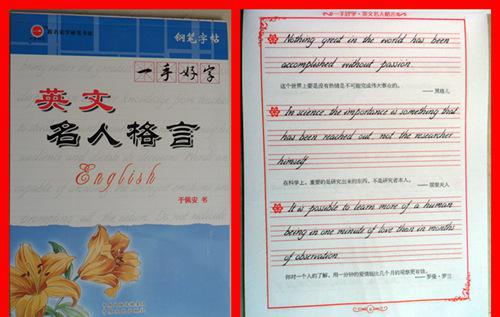 钢笔字帖
一手好字
英文
名人格言
English
于佩安 书
一手好字·英文名人格言
Nothing great in the world has been
accomplished without passion.
这个世界上要是没有热情是不可能完成伟大事业的。
——黑格儿
In science, the importance is something that
has been reached out, not the researcher
himself.
在科学上,重要的是研究出来的东西,不是研究者本人。
——居里夫人
It is possible to learn more of a human
being in one minute of love than in months
of observation.
你对一个人的了解,用一分钟的爱情能比几个月的观察更有效。
——罗曼·罗兰